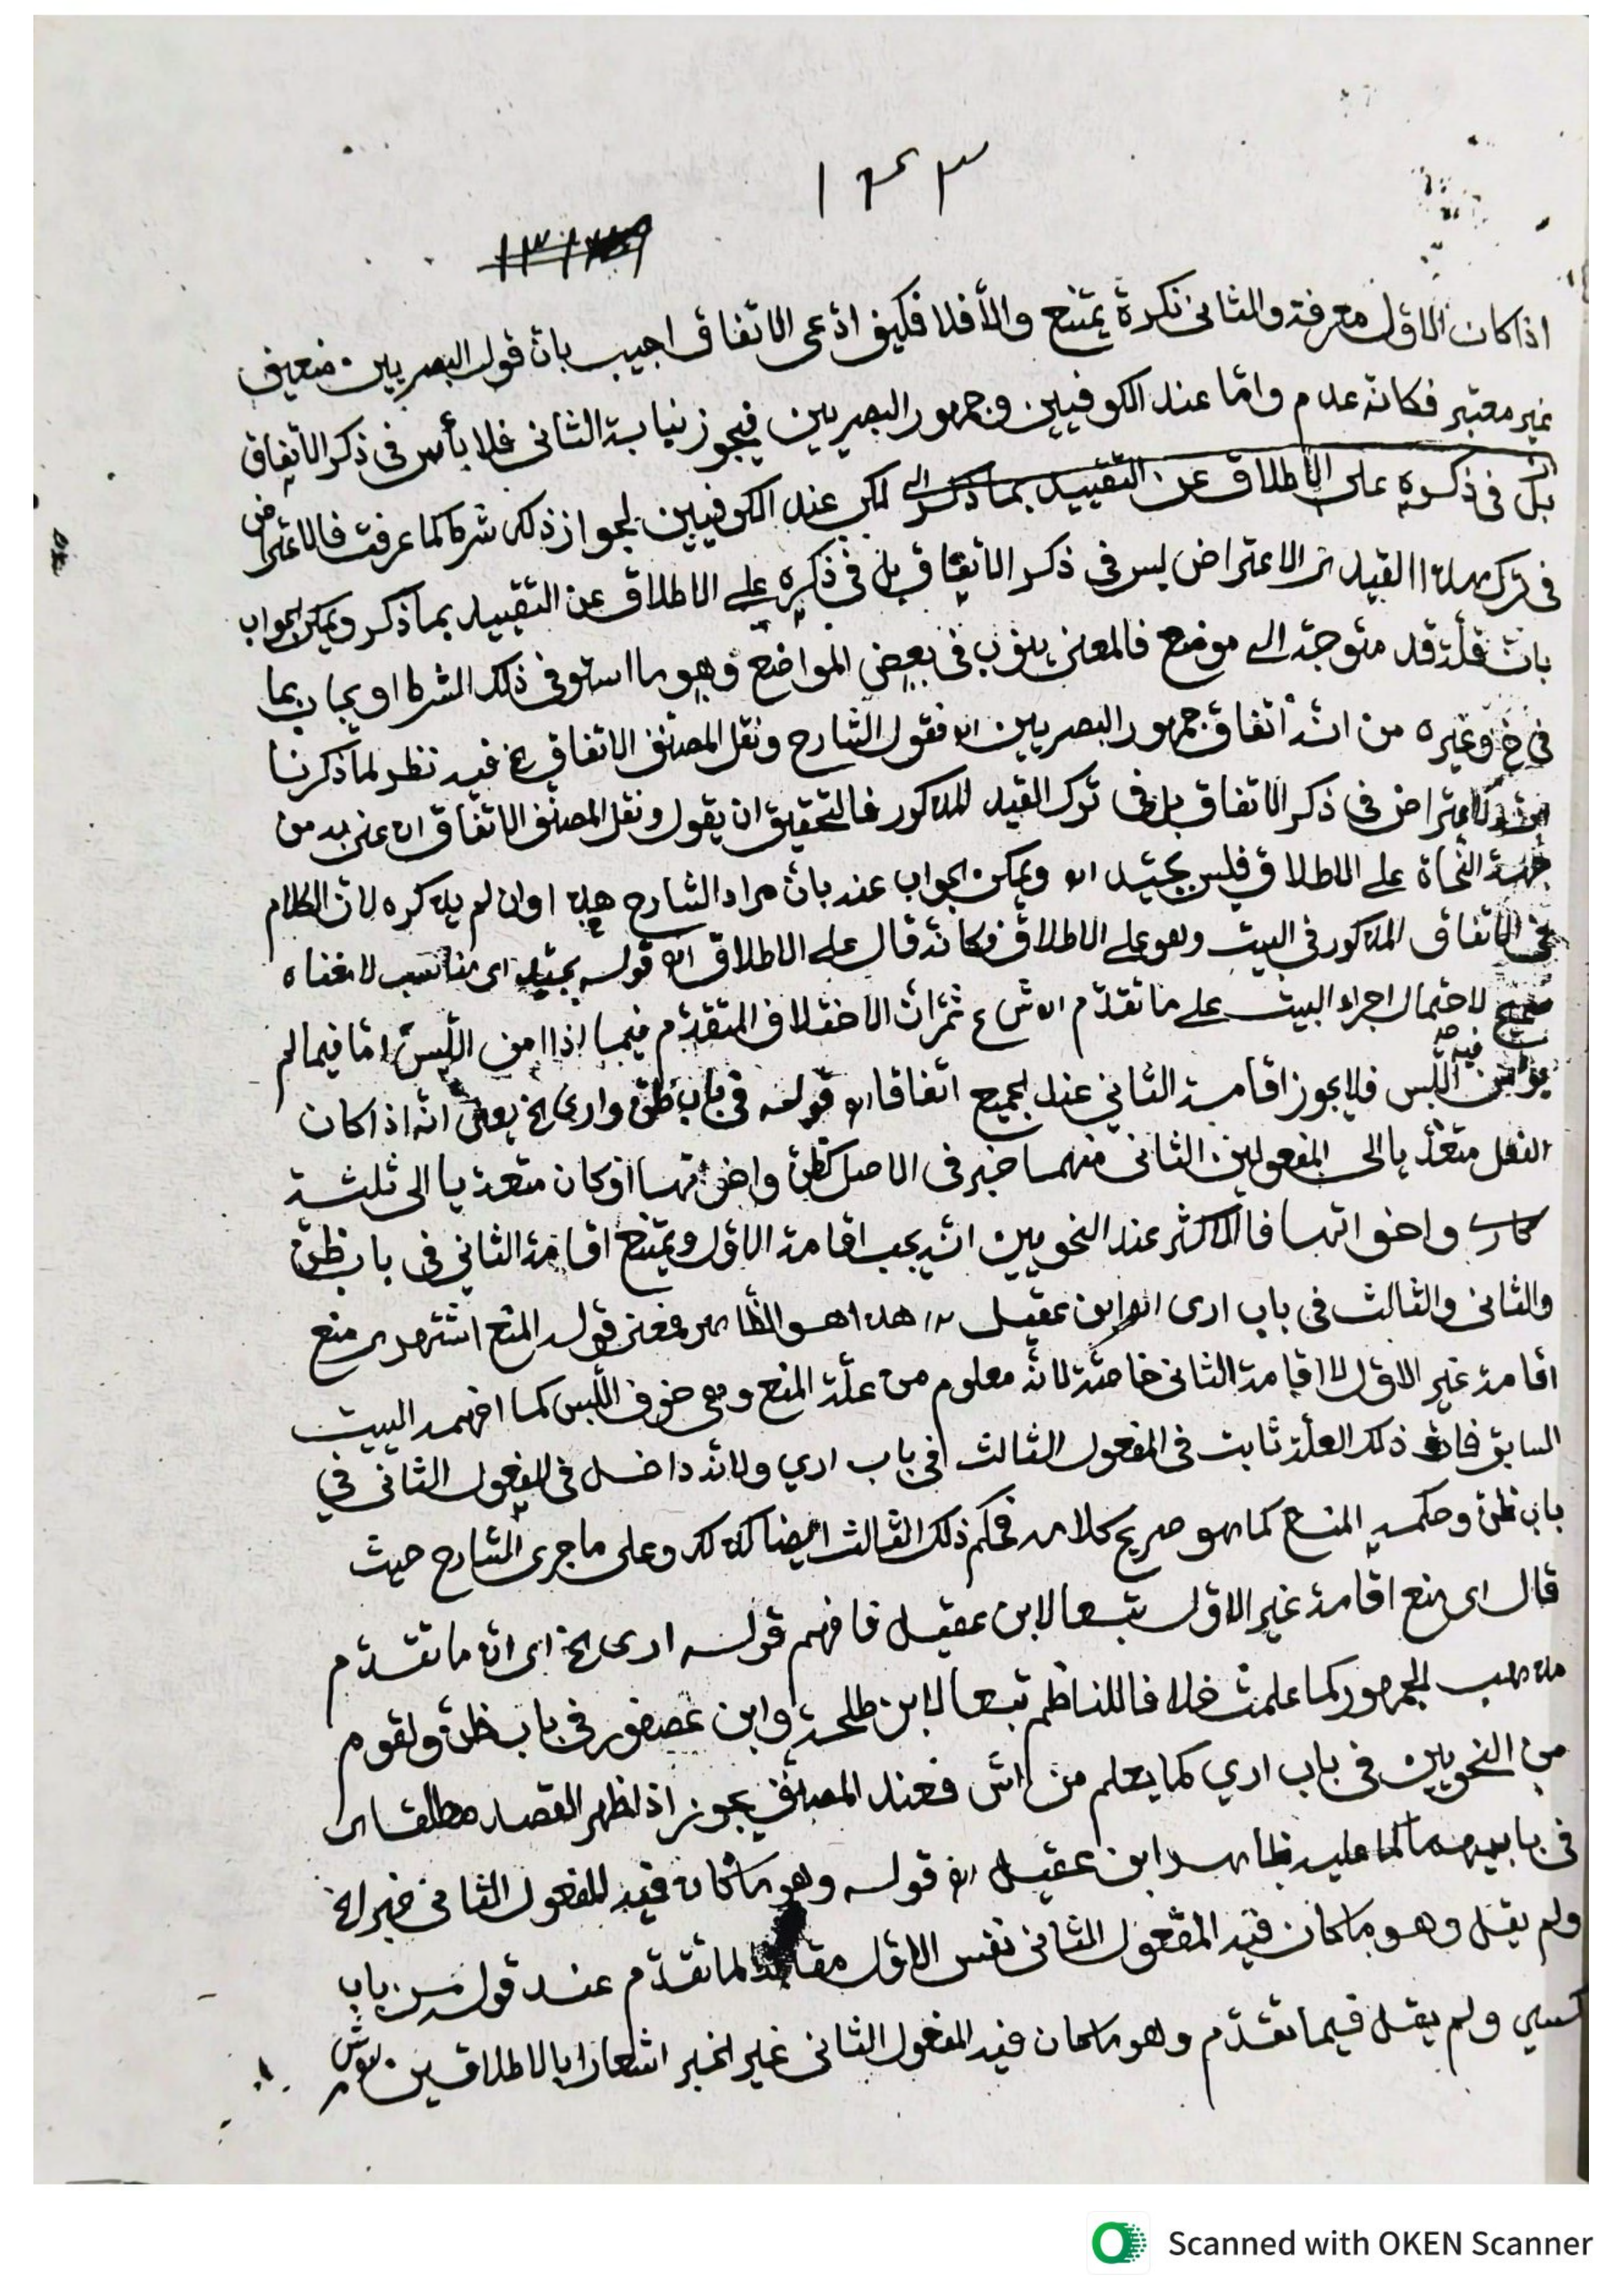 ١٤٣
اذا كان الاوّل معرفة والثانى نكرة يمتنع والّا فلا فكيف ادّعى الاتفاق اجيب بانّ قول البصريين ضعيف
غير معتبر فكانّه عدم وامّا عند الكوفيين وجمهور البصريين فيجوز نيابة الثانى فلا بأس فى ذكر الاتفاق
بل فى ذكره على الاطلاق عن التقييد بما ذكر لكن عند الكوفيين لجواز ذلك شرط كما عرفت فالاعتراض
فى ترك هذا القيد الاعتراض ليس فى ذكر الاتفاق بل فى ذكره على الاطلاق عن التقييد بما ذكر ويمكن الجواب
بانّ قد متوجّه الى موضع فالمعنى ينوب فى بعض المواضع وهو ما استوفى ذلك الشرط او يجاب بما
فى خ وغيره من انّه اتفاق جمهور البصريين اه فقول الشارح ونقل المصنف الاتفاق الخ فيه نظر لما ذكرنا
الاعتراض فى ذكر الاتفاق بل فى ترك القيد المذكور فالتحقيق ان يقول ونقل المصنف الاتفاق اه عنى به من
جهة النحاة على الاطلاق فليس بجيّد اه ويمكن الجواب عنه بانّ مراد الشارح هذا وان لم يذكره لانّ الكلام
فى الاتفاق المذكور فى البيت وهو على الاطلاق فكانّه قال على الاطلاق اه قوله بجيّد اى مناسب لا معناه
صحيح لاحتمال اجراء البيت على ما تقدّم اه ش ع ثمّ انّ الاختلاف المتقدّم فيما اذا امن اللّبس امّا فيما لم
يؤمن فيه اللّبس فلا يجوز اقامة الثاني عند الجميع اتفاقا اه قوله فى باب ظنّ وارى الخ يعنى انّه اذا كان
الفعل متعدّيا الى المفعولين الثانى منهما خبر فى الاصل كظنّ واخواتها او كان متعديا الى ثلثة
كارى واخواتها فالاكثر عند النحويين انّه يجب اقامة الاوّل ويمتنع اقامة الثاني فى باب ظنّ
والثانى والثالث فى باب ارى اه ابن عقيل هذا هو الظاهر فمعنى قوله المنع اشتهر اى منع
اقامة غير الاوّل لا اقامة الثانى خاصّة لانّه معلوم من علّة المنع وهى خوف اللّبس كما افهمه البيت
السابق فانّ ذلك العلّة ثابت فى المفعول الثالث فى باب اري ولانّه داخل فى المفعول الثانى في
باب ظنّ وحكمه المنع كما هو صريح كلامه فحكم ذلك الثالث ايضا كذلك وعلى ما جرى الشارح حيث
قال اى منع اقامة غير الاوّل تبعا لابن عقيل فافهم قوله ارى الخ اى انّ ما تقدّم
مذهب الجمهور كما علمت خلافا للناظم تبعا لابن طلحة وابن عصفور فى باب ظنّ ولقوم
من النحويين فى باب اري كما يعلم من اش فعند المصنّف يجوز اذا ظهر القصد مطلقا اى
فى بابيهما كما عليه ظاهر ابن عقيل اه قوله وهو ما كان فيه المفعول الثانى خبر الخ
ولم يقل وهو ما كان فيه المفعول الثانى نفس الاوّل لما تقدّم عند قوله من باب
كسي ولم يقل فيما تقدّم وهو ما كان فيه المفعول الثانى غير الخبر اشعارا بالاطلاقين
Scanned with OKEN Scanner